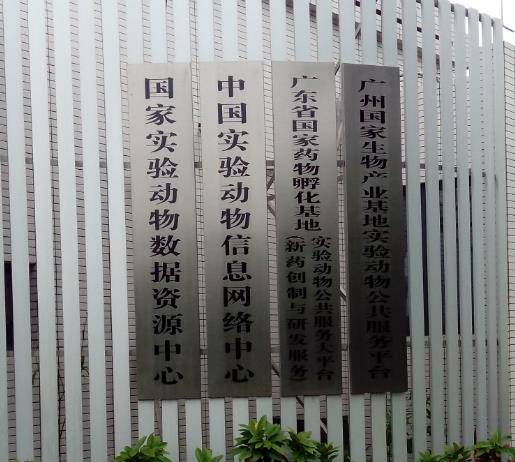 国家实验动物数据资源中心
中国实验动物信息网络中心
广东省国家药物孵化基地
实验动物公共服务大平台
(新药创制与研发服务)
广州国家生物产业基地实验动物公共服务平台